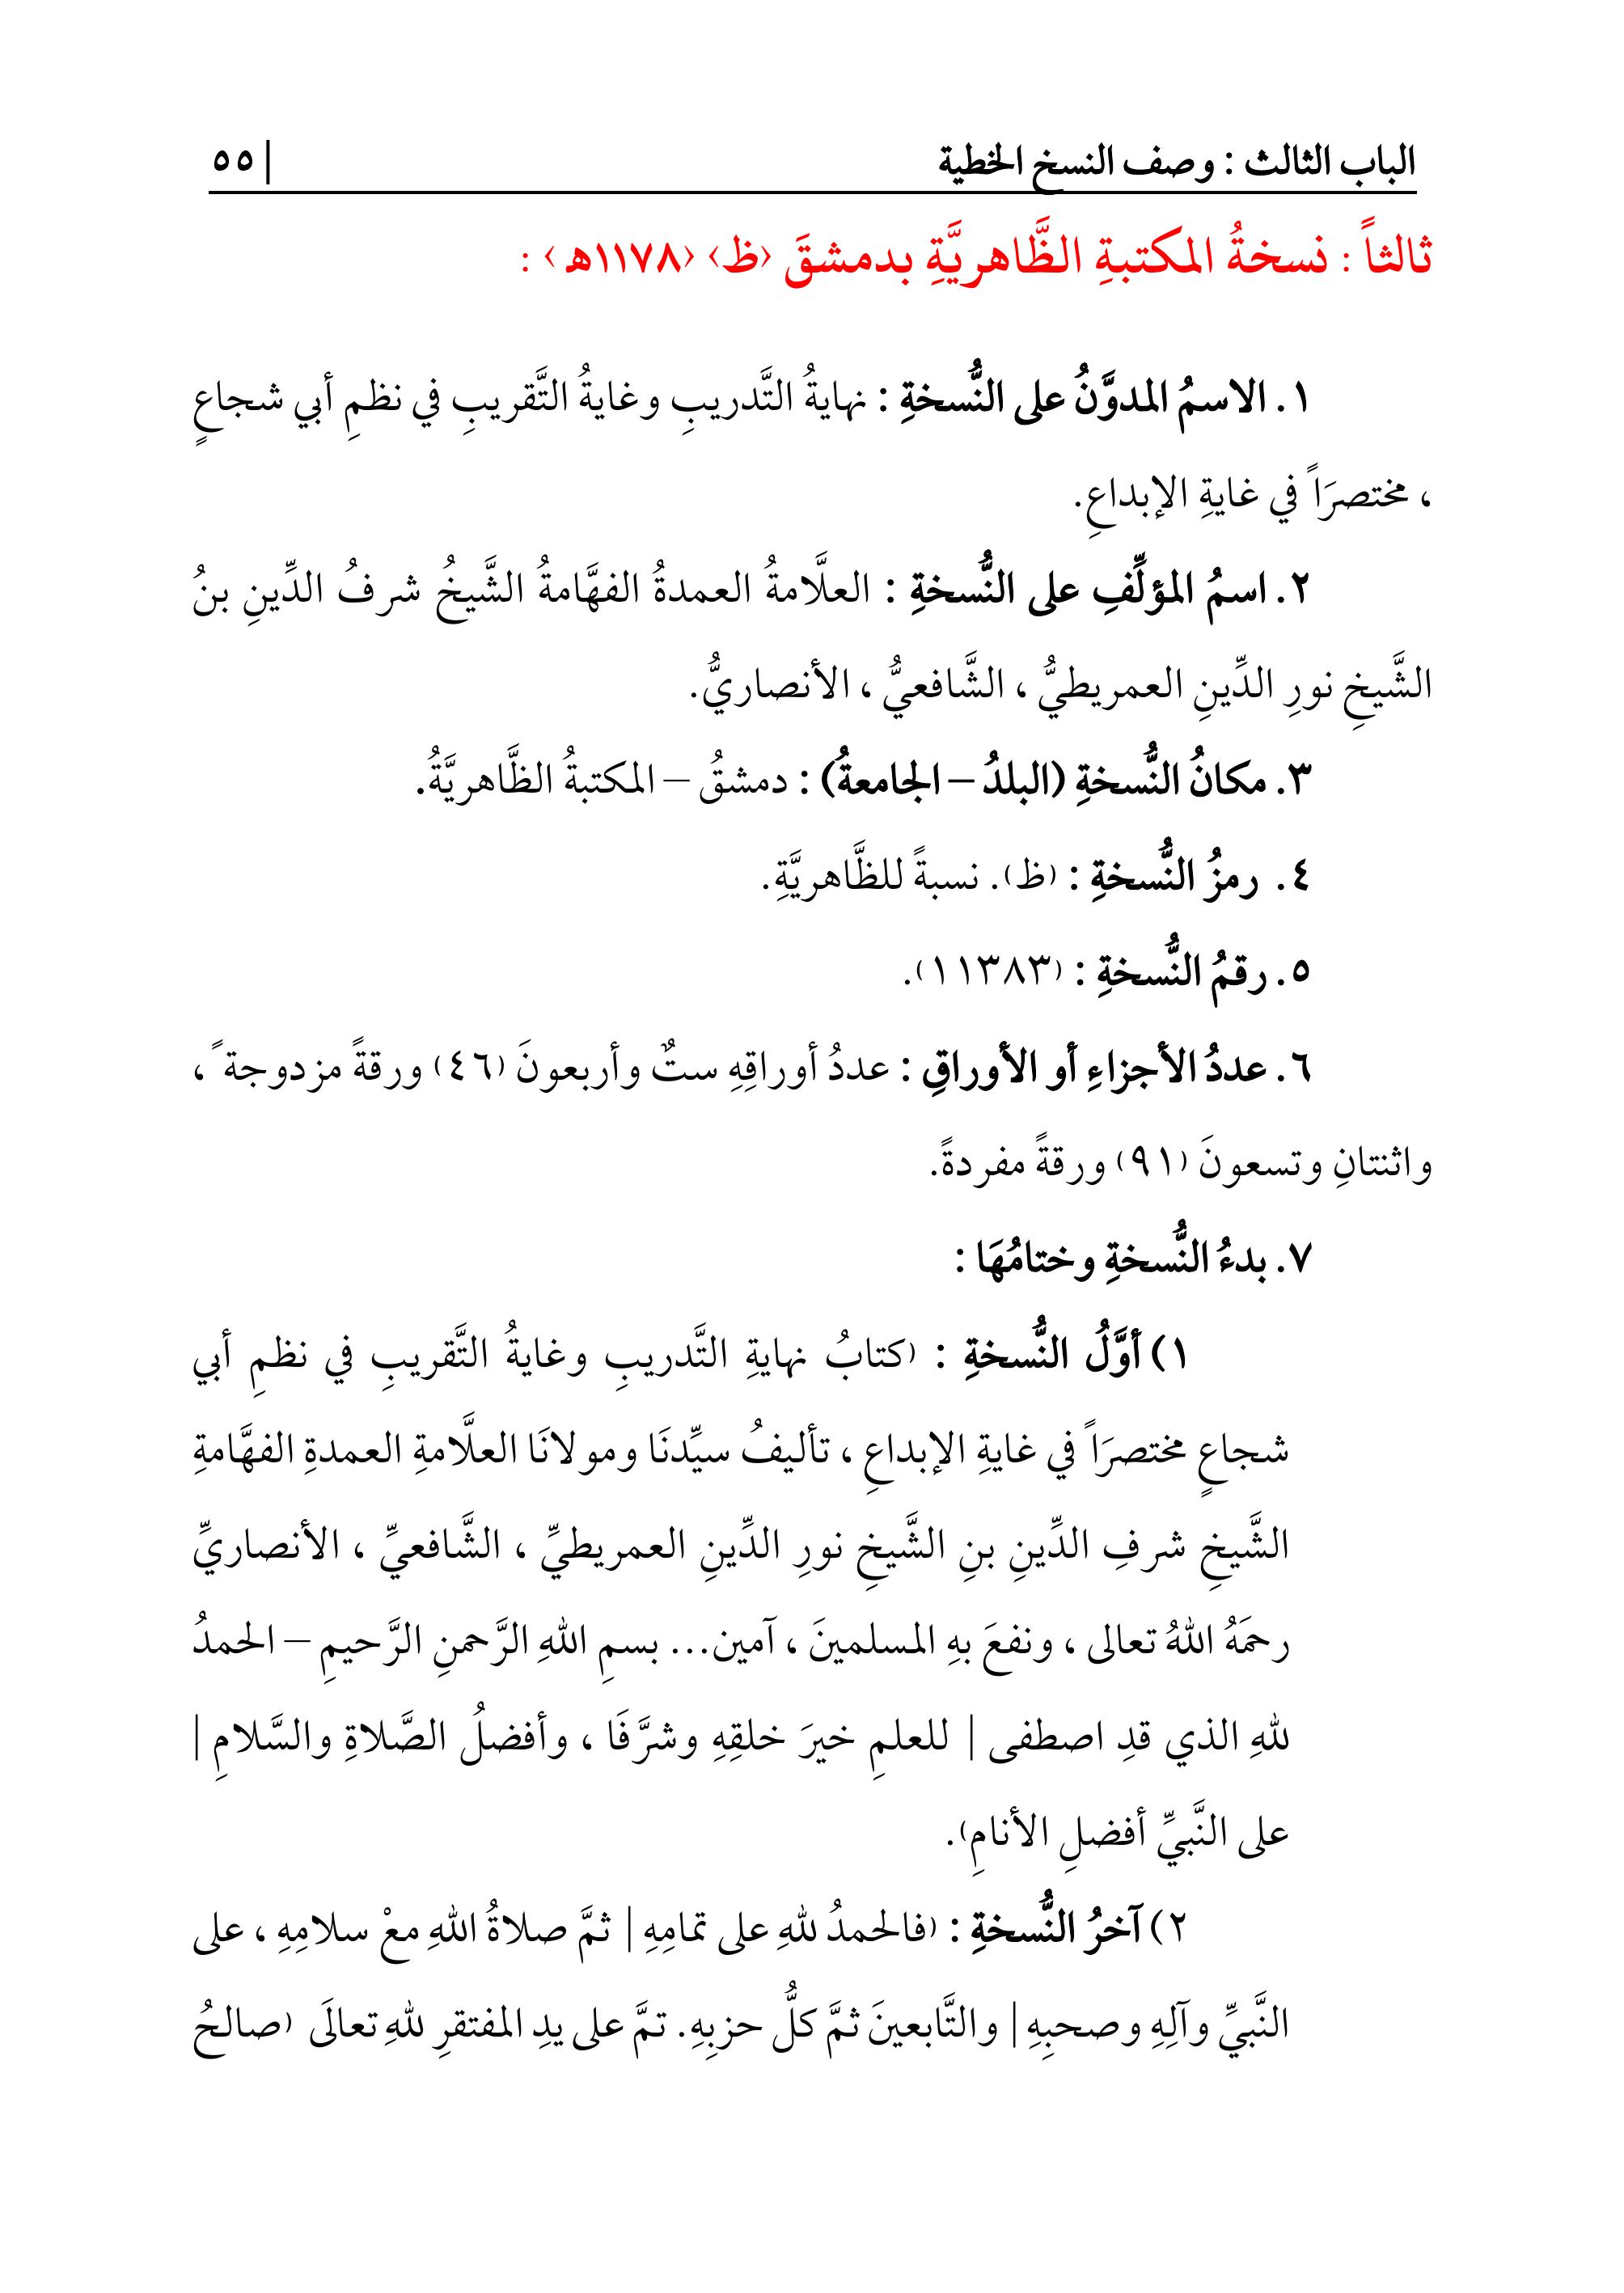 الباب الثالث : وصف النسخ الخطية | ٥٥
ثالثاً : نسخةُ المكتبةِ الظَّاهريَّةِ بدمشقَ (ظ) (١١٧٨هـ) :
١. الاسمُ المدوَّنُ على النُّسخةِ : نهايةُ التَّدريبِ وغايةُ التَّقريبِ في نظمِ أبي شجاعٍ
، مختصرَاً في غايةِ الإبداعِ.
٢. اسمُ المؤلِّفِ على النُّسخةِ : العلَّامةُ العمدةُ الفهَّامةُ الشَّيخُ شرفُ الدِّينِ بنُ
الشَّيخِ نورِ الدِّينِ العمريطيُّ ، الشَّافعيُّ ، الأنصاريُّ.
٣. مكانُ النُّسخةِ (البلدُ – الجامعةُ) : دمشقُ – المكتبةُ الظَّاهريَّةُ.
٤. رمزُ النُّسخةِ : (ظ). نسبةً للظَّاهريَّةِ.
٥. رقمُ النُّسخةِ : (١١٣٨٣).
٦. عددُ الأجزاءِ أو الأوراقِ : عددُ أوراقِهِ ستٌ وأربعونَ (٤٦) ورقةً مزدوجة ً ،
واثنتانِ وتسعونَ (٩١) ورقةً مفردةً.
٧. بدءُ النُّسخةِ وختامُهَا :
١) أوَّلُ النُّسخةِ : (كتابُ نهايةِ التَّدريبِ وغايةُ التَّقريبِ في نظمِ أبي
شجاعٍ مختصرَاً في غايةِ الإبداعِ ، تأليفُ سيِّدنَا ومولانَا العلَّامةِ العمدةِ الفهَّامةِ
الشَّيخِ شرفِ الدِّينِ بنِ الشَّيخِ نورِ الدِّينِ العمريطيِّ ، الشَّافعيِّ ، الأنصاريِّ
رحمَهُ اللهُ تعالى ، ونفعَ بهِ المسلمينَ ، آمين... بسمِ اللهِ الرَّحمنِ الرَّحيمِ – الحمدُ
للهِ الذي قدِ اصطفى | للعلمِ خيرَ خلقِهِ وشرَّفَا ، وأفضلُ الصَّلاةِ والسَّلامِ |
على النَّبيِّ أفضلِ الأنامِ).
٢) آخرُ النُّسخةِ : (فالحمدُ للهِ على تمامِهِ | ثمَّ صلاةُ اللهِ معْ سلامِهِ ، على
النَّبيِّ وآلِهِ وصحبِهِ | والتَّابعينَ ثمَّ كلُّ حزبِهِ. تمَّ على يدِ المفتقرِ للهِ تعالَى (صالحُ